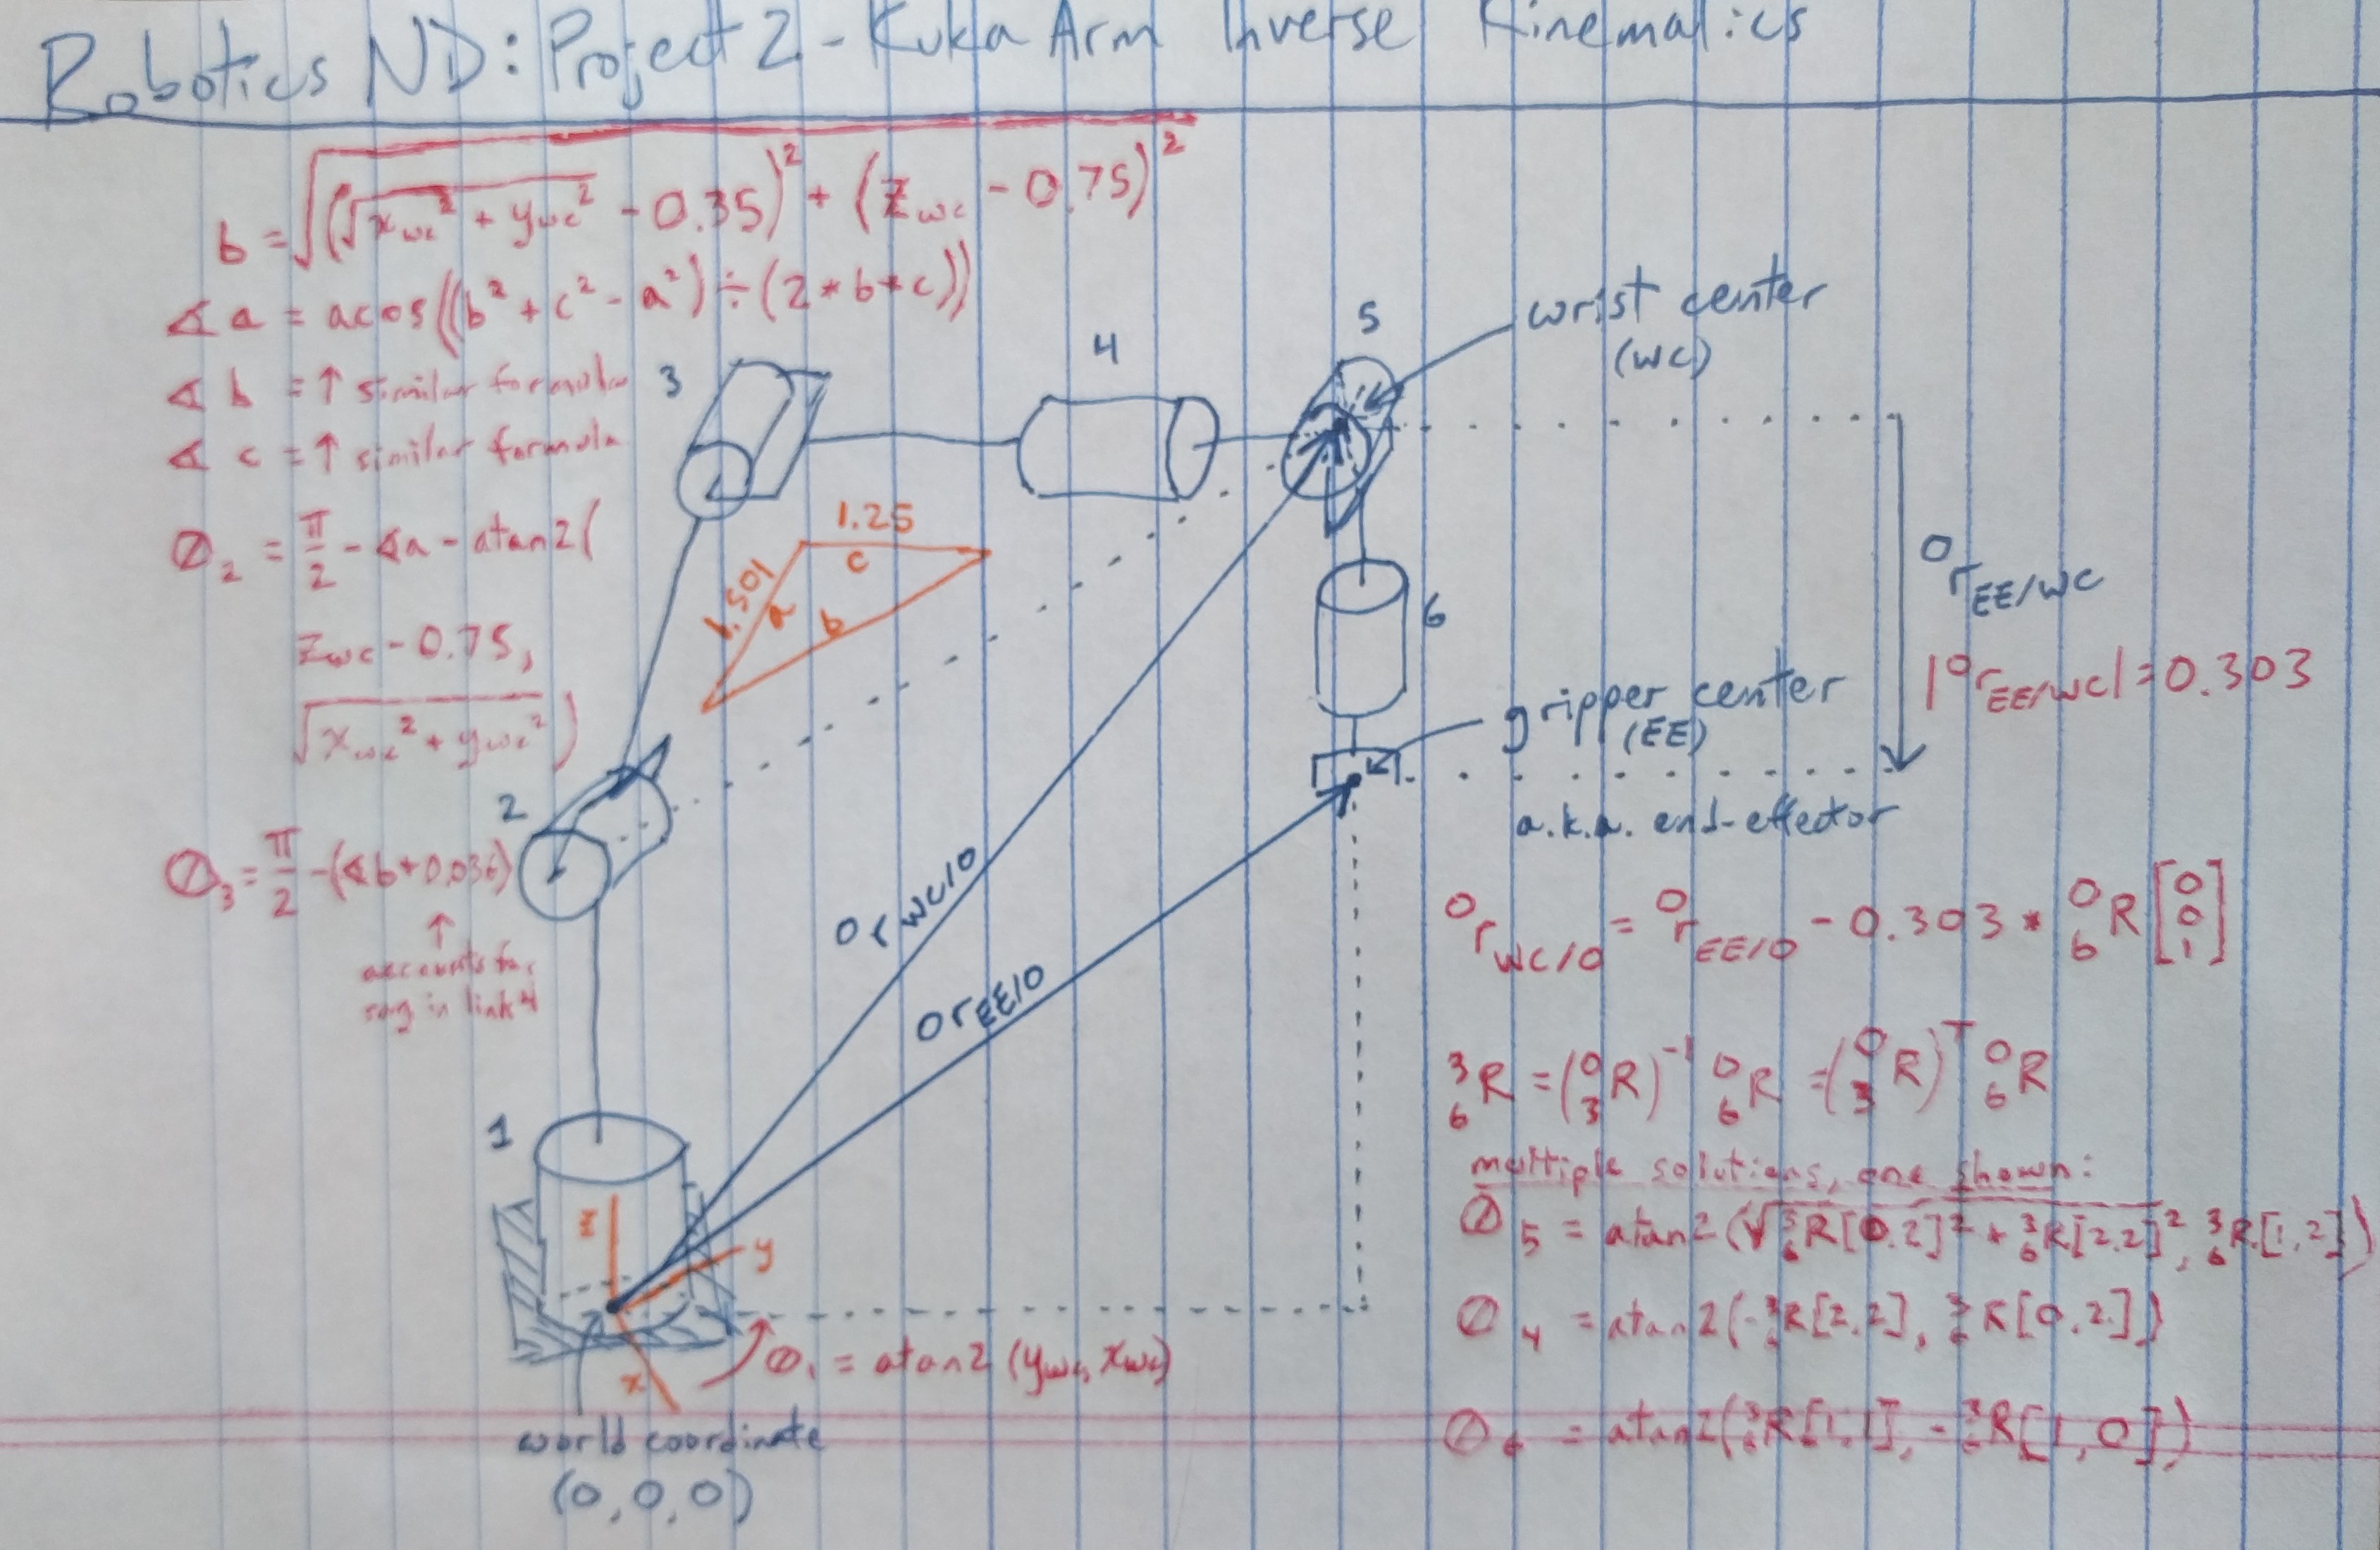 Robotics ND: Project 2 - Kuka Arm Inverse Kinematics
b = √((√(x_wc² + y_wc²) - 0.35)² + (z_wc - 0.75)²)
∡ a = acos((b² + c² - a²) ÷ (2 * b * c))
∡ b = ↑ similar formula
∡ c = ↑ similar formula
θ₂ = π/2 - ∡a - atan2(
z_wc - 0.75,
√(x_wc² + y_wc²))
θ₃ = π/2 - (∡b + 0.036)
↑
accounts for
sag in link 4
3
4
5
wrist center
(WC)
1.25
c
1.501
a
b
⁰r_EE/WC
|⁰r_EE/WC| = 0.303
6
gripper center
(EE)
a.k.a. end-effector
2
⁰r_WC/0
⁰r_EE/0
1
z
y
x
θ₁ = atan2 (y_wc, x_wc)
world coordinate
(0,0,0)
⁰r_WC/0 = ⁰r_EE/0 - 0.303 * ⁰₆R [0 0 1]
³₆R = (⁰₃R)⁻¹ ⁰₆R = (⁰₃R)ᵀ ⁰₆R
multiple solutions, one shown:
θ₅ = atan2(√(³₆R[0,2]² + ³₆R[2,2]²), ³₆R[1,2])
θ₄ = atan2(-³₆R[2,2], ³₆R[0,2])
θ₆ = atan2(³₆R[1,1], -³₆R[1,0])